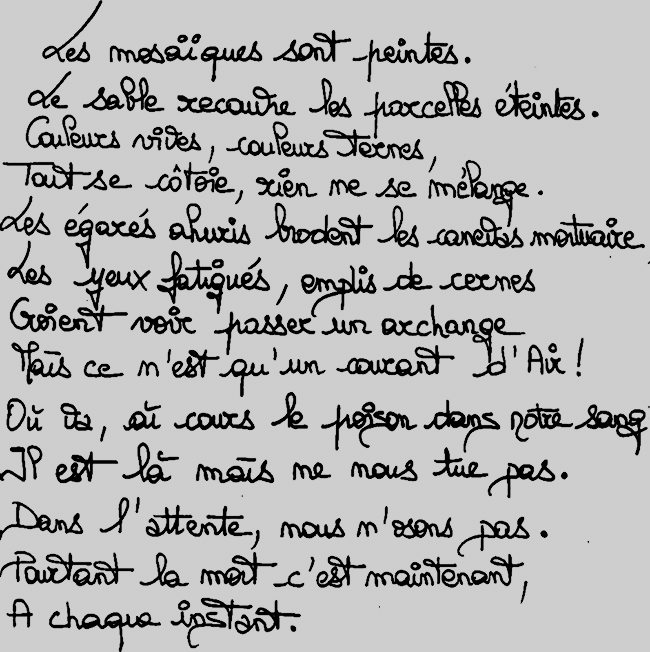 Les mosaïques sont peintes.
Le sable recouvre les parcelles éteintes.
Couleurs vives, couleurs ternes,
Tout se côtoie, rien ne se mélange.
Les égarés ahuris brodent les mortuaire
Les yeux fatigués, emplis de cernes
Croient voir passer un archange
Mais ce n'est qu'un courant d'Air !
Où va, où cours le poison dans notre sang
Il est là mais ne nous tue pas.
Dans l'attente, nous n'osons pas.
Pourtant la mort c'est maintenant,
A chaque instant.